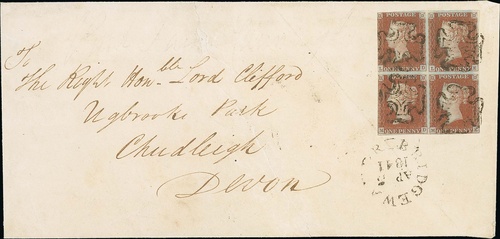 To
The Right Honble Lord Clifford
Ugbrooke Park
Chudleigh
Devon
POSTAGE POSTAGE
ONE PENNY ONE PENNY
POSTAGE POSTAGE
ONE PENNY ONE PENNY
AP
1841